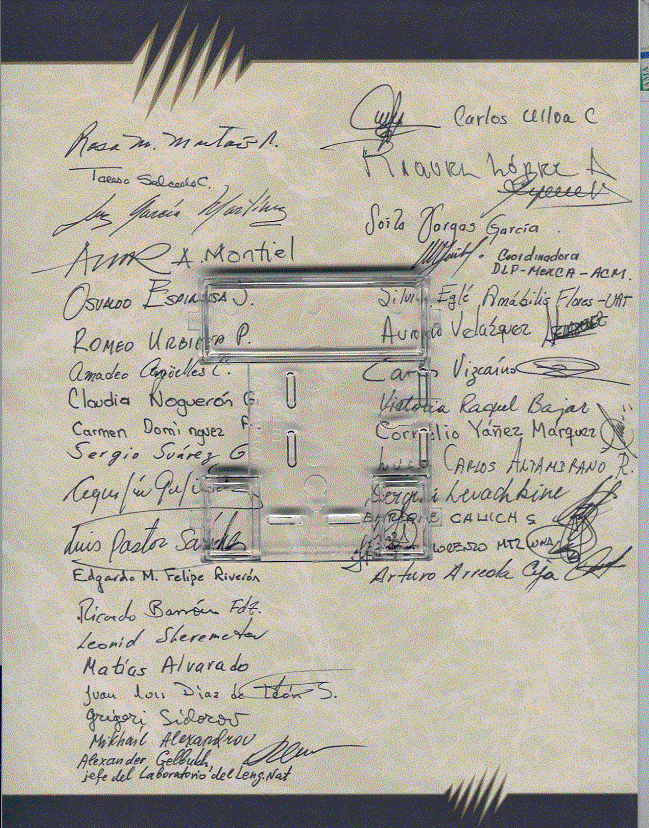 Rosa M.
Teresa Salcedo C.
García Martínez
A. Montiel
Osvaldo Espinosa S.
Romeo Urbieta P.
Amadeo Argüelles C.
Claudia Noguerón G
Carmen Domínguez
Sergio Suárez G
Luis Pastor Sánchez
Edgardo M. Felipe Riverón
Ricardo Barrón Fdz.
Leonid Sheremetov
Matías Alvarado
Juan Luis Díaz de León S.
Grigori Sidorov
Mikhail Alexandrov
Alexander Gelbukh
jefe del Laboratorio del Leng. Nat
Carlos Ulloa C
López
Vargas García
Coordinadora
DLP-MERCA-ACM.
Silvia Eglé Amábilis Flores-UAT
Aurelio Velázquez
Carlos Vizcaíno
Victoria Raquel Bajar
Cornelio Yáñez Márquez
Luis Carlos Altamirano R.
Serguei Levachkine
Lorenzo Mtz Luna
Arturo Arreola